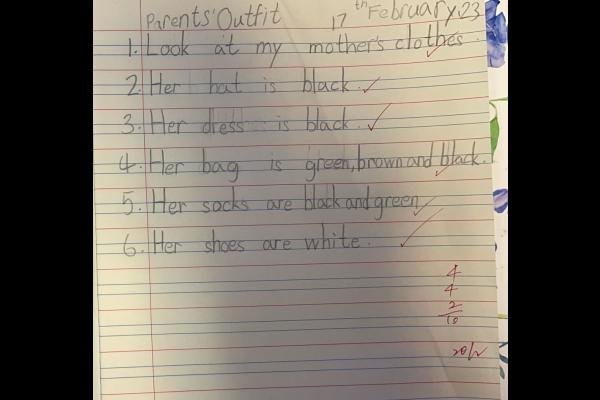 Parents' Outfit 17th February.23
1. Look at my mother's clothes.
2. Her hat is black.
3. Her dress is black.
4. Her bag is green,brown and black.
5. Her socks are black and green.
6. Her shoes are white.
4
4
2
10